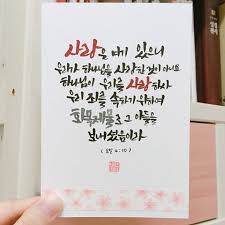 사랑은 여기 있으니
우리가 하나님을 사랑한 것이 아니요
하나님이 우리를 사랑하사
우리 죄를 속하기 위하여
화목제물로 그 아들을
보내셨음이라
(요일 4:10)